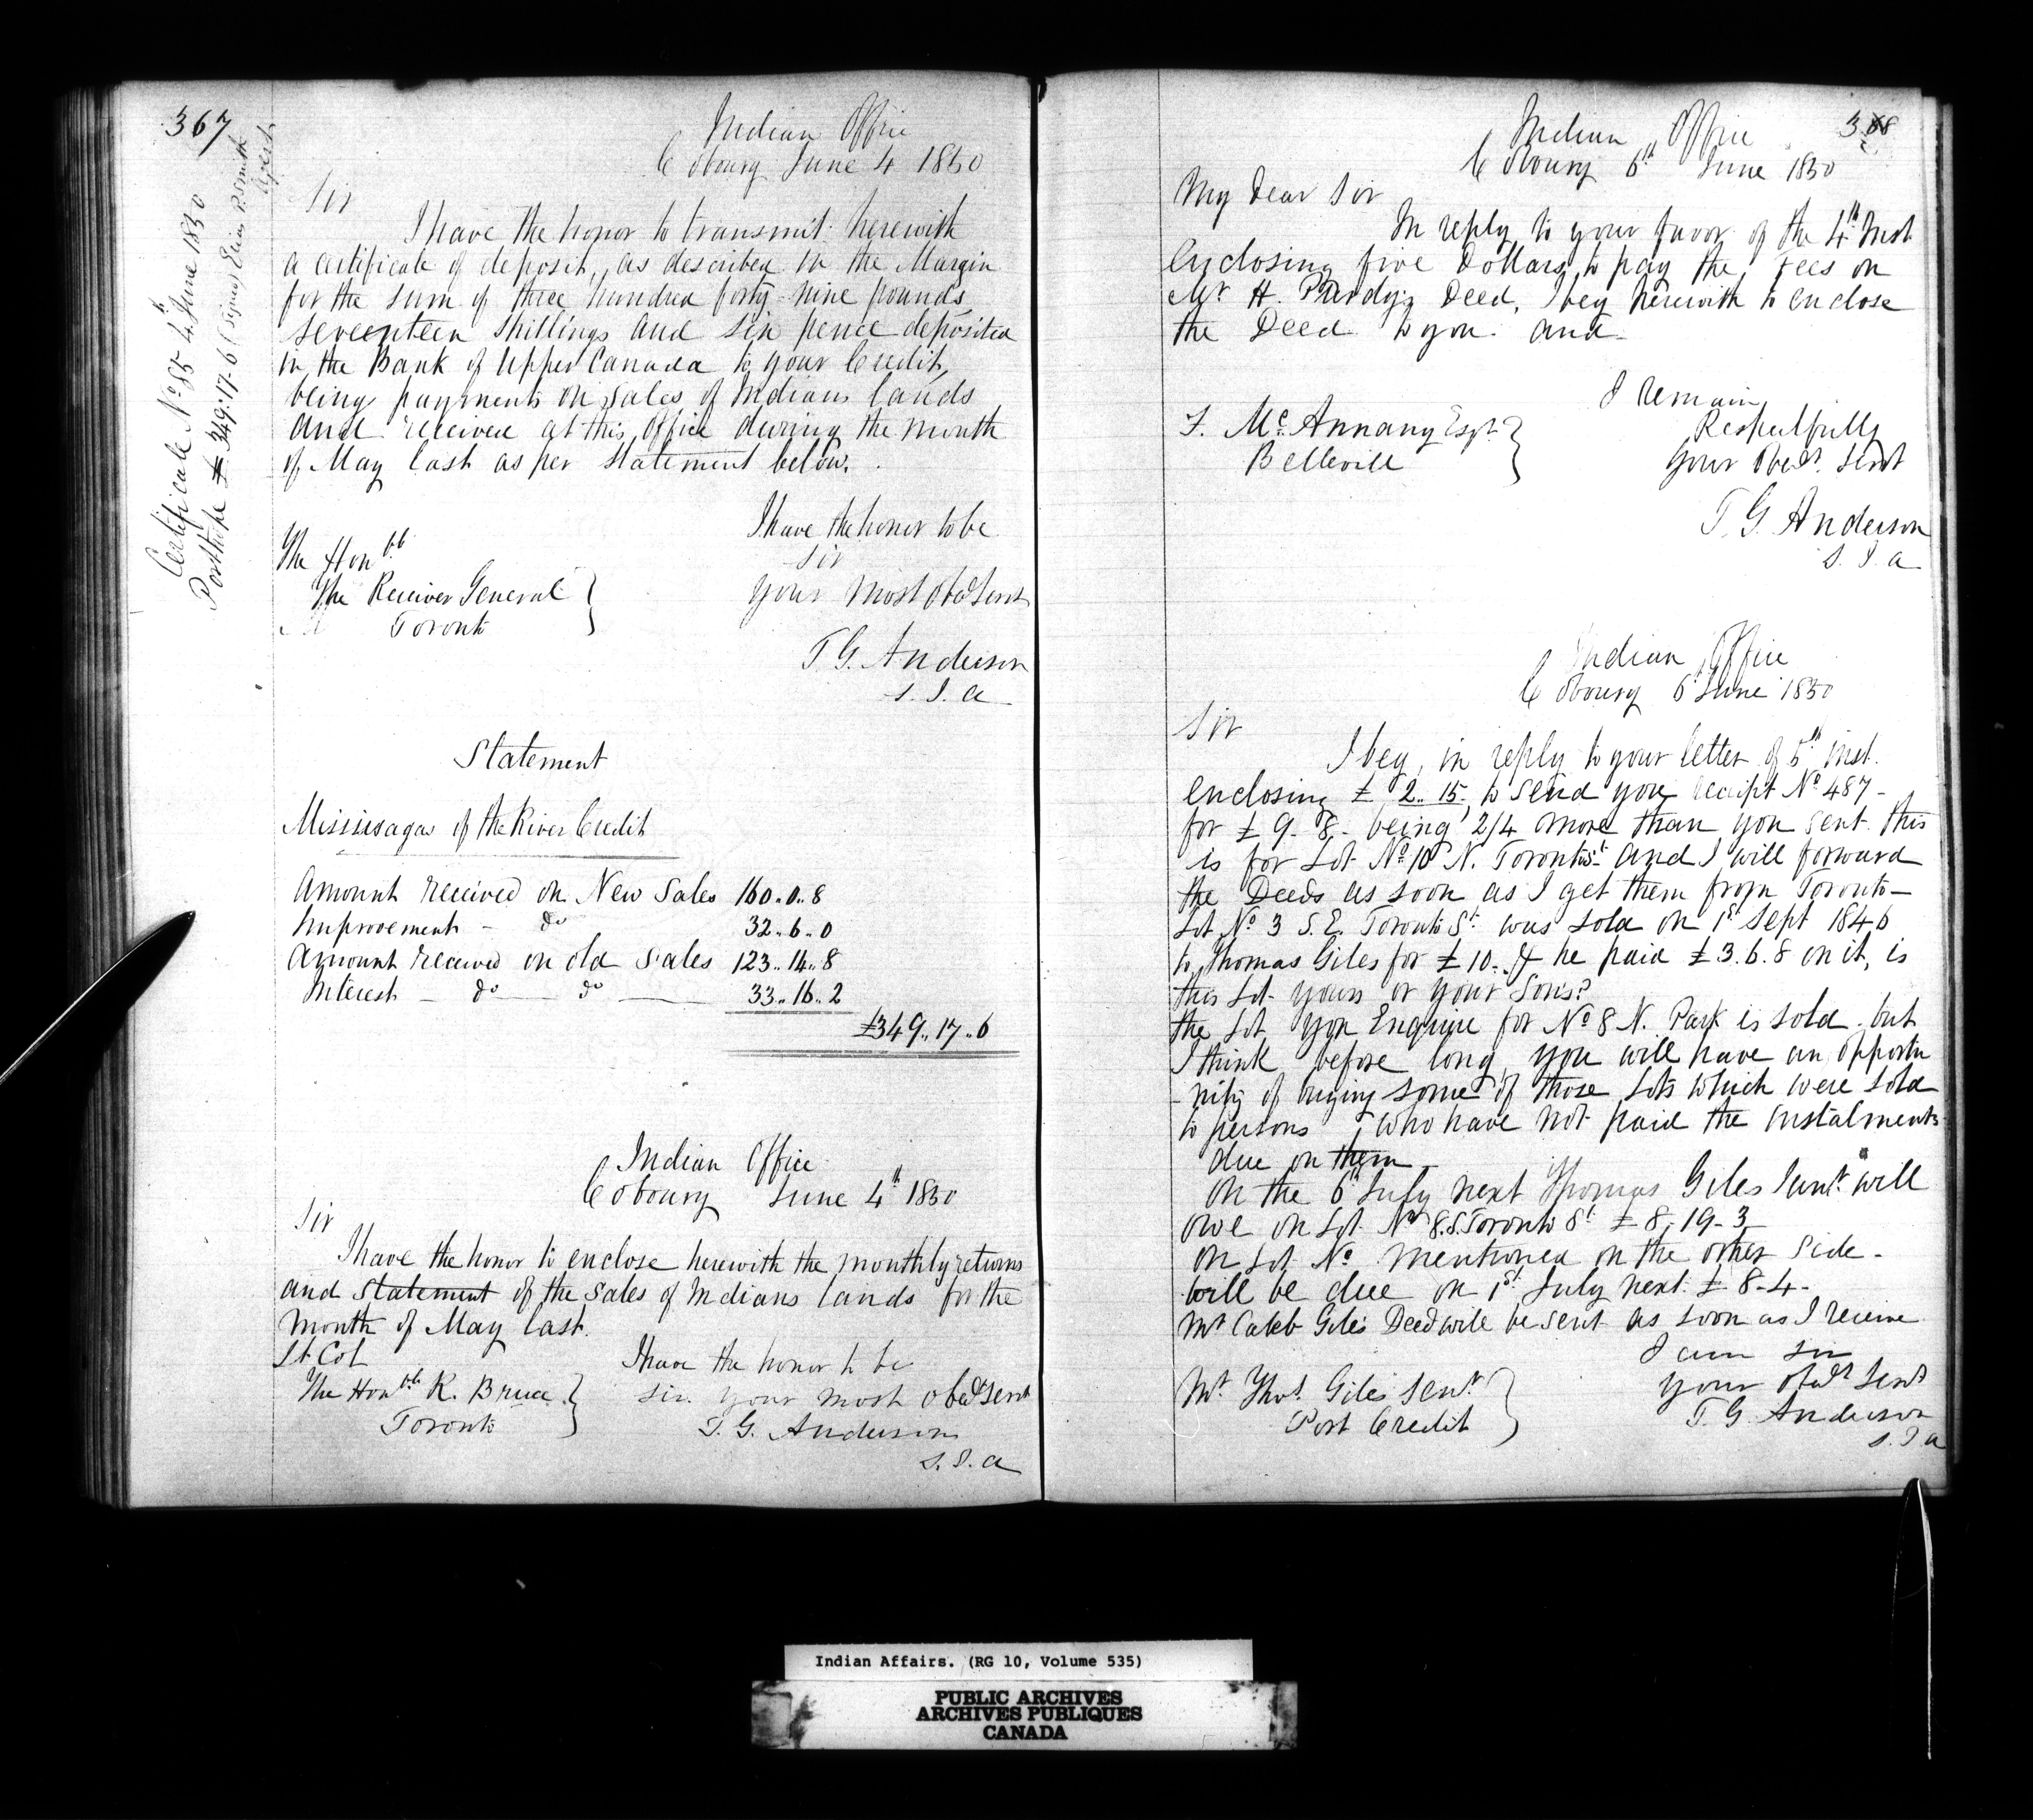 367
Certificate No 85 4th June 1850
Porthope £349.17.6 (signed) Elias P. Smith
Agent
Indian Office
Cobourg June 4 1850
Sir
I have the honor to transmit herewith
a certificate of deposit, as described in the Margin
for the sum of three hundred forty-nine pounds
seventeen shillings and six pence deposited
in the Bank of Upper Canada to your Credit,
being payments on sales of Indians lands
and received at this Office during the month
of May last as per statement below.
I have the honor to be
Sir
your most obedt Servt
The Honble
The Receiver General
Toronto
T G. Anderson
S. I. A
Statement
Mississagas of the River Credit
Amount received on New Sales 160..0..8
Improvement - do 32..6..0
Amount received on old Sales 123..14..8
Interest - do - do 33..16..2
£349..17..6
Indian Office
Cobourg June 4th 1850
Sir
I have the honor to enclose herewith the monthly returns
and statement of the sales of Indians lands for the
month of May last.
I have the honor to be
Sir your most obedt servt
T. G. Anderson
S. I. A
Lt Col
The Honble R. Bruce
Toronto
368
Indian Office
Cobourg 6th June 1850
My Dear Sir
In reply to your favor of the 4th Inst
Enclosing five Dollars to pay the fees on
Mr H. Purdy's Deed, I beg herewith to enclose
the Deed to you and
I remain
Respectfully
your Obedt. Servt
F. McAnnany Esqr.
Bellevill
T. G. Anderson
S. I. A
Indian Office
Cobourg 6th June 1850
Sir
I beg, in reply to your letter of 5th inst.
enclosing £ 2.. 15, to send you receipt No 487-
for £ 9- 8- being 2/4 more than you sent. this
is for Lot No 10 N. Toronto St. and I will forward
the Deeds as soon as I get them from Toronto-
Lot No 3 S. E. Toronto St. was sold on 1st Sept 1846
to Thomas Giles for £10. & he paid £3.6.8 on it, is
this Lot yours or your Sons?
the Lot you Enquire for No 8 N. Park is sold. but
I think before long you will have an opportu
-nity of buying some of those Lots which were sold
to persons who have not paid the instalments
due on them
On the 6th July next Thomas Giles Junr. will
owe on Lot No 8.S.Toronto St. £8, 19-3
on Lot No mentioned on the other side-
will be due on 1st July next £ 8-4-
Mr Caleb Giles Deed will be sent as soon as I receive
I am Sir
your Obedt Servt
T. G. Anderson
S. I. A
Mr Thos. Giles Senr.
Port Credit
Indian Affairs. (RG 10, Volume 535)
PUBLIC ARCHIVES
ARCHIVES PUBLIQUES
CANADA